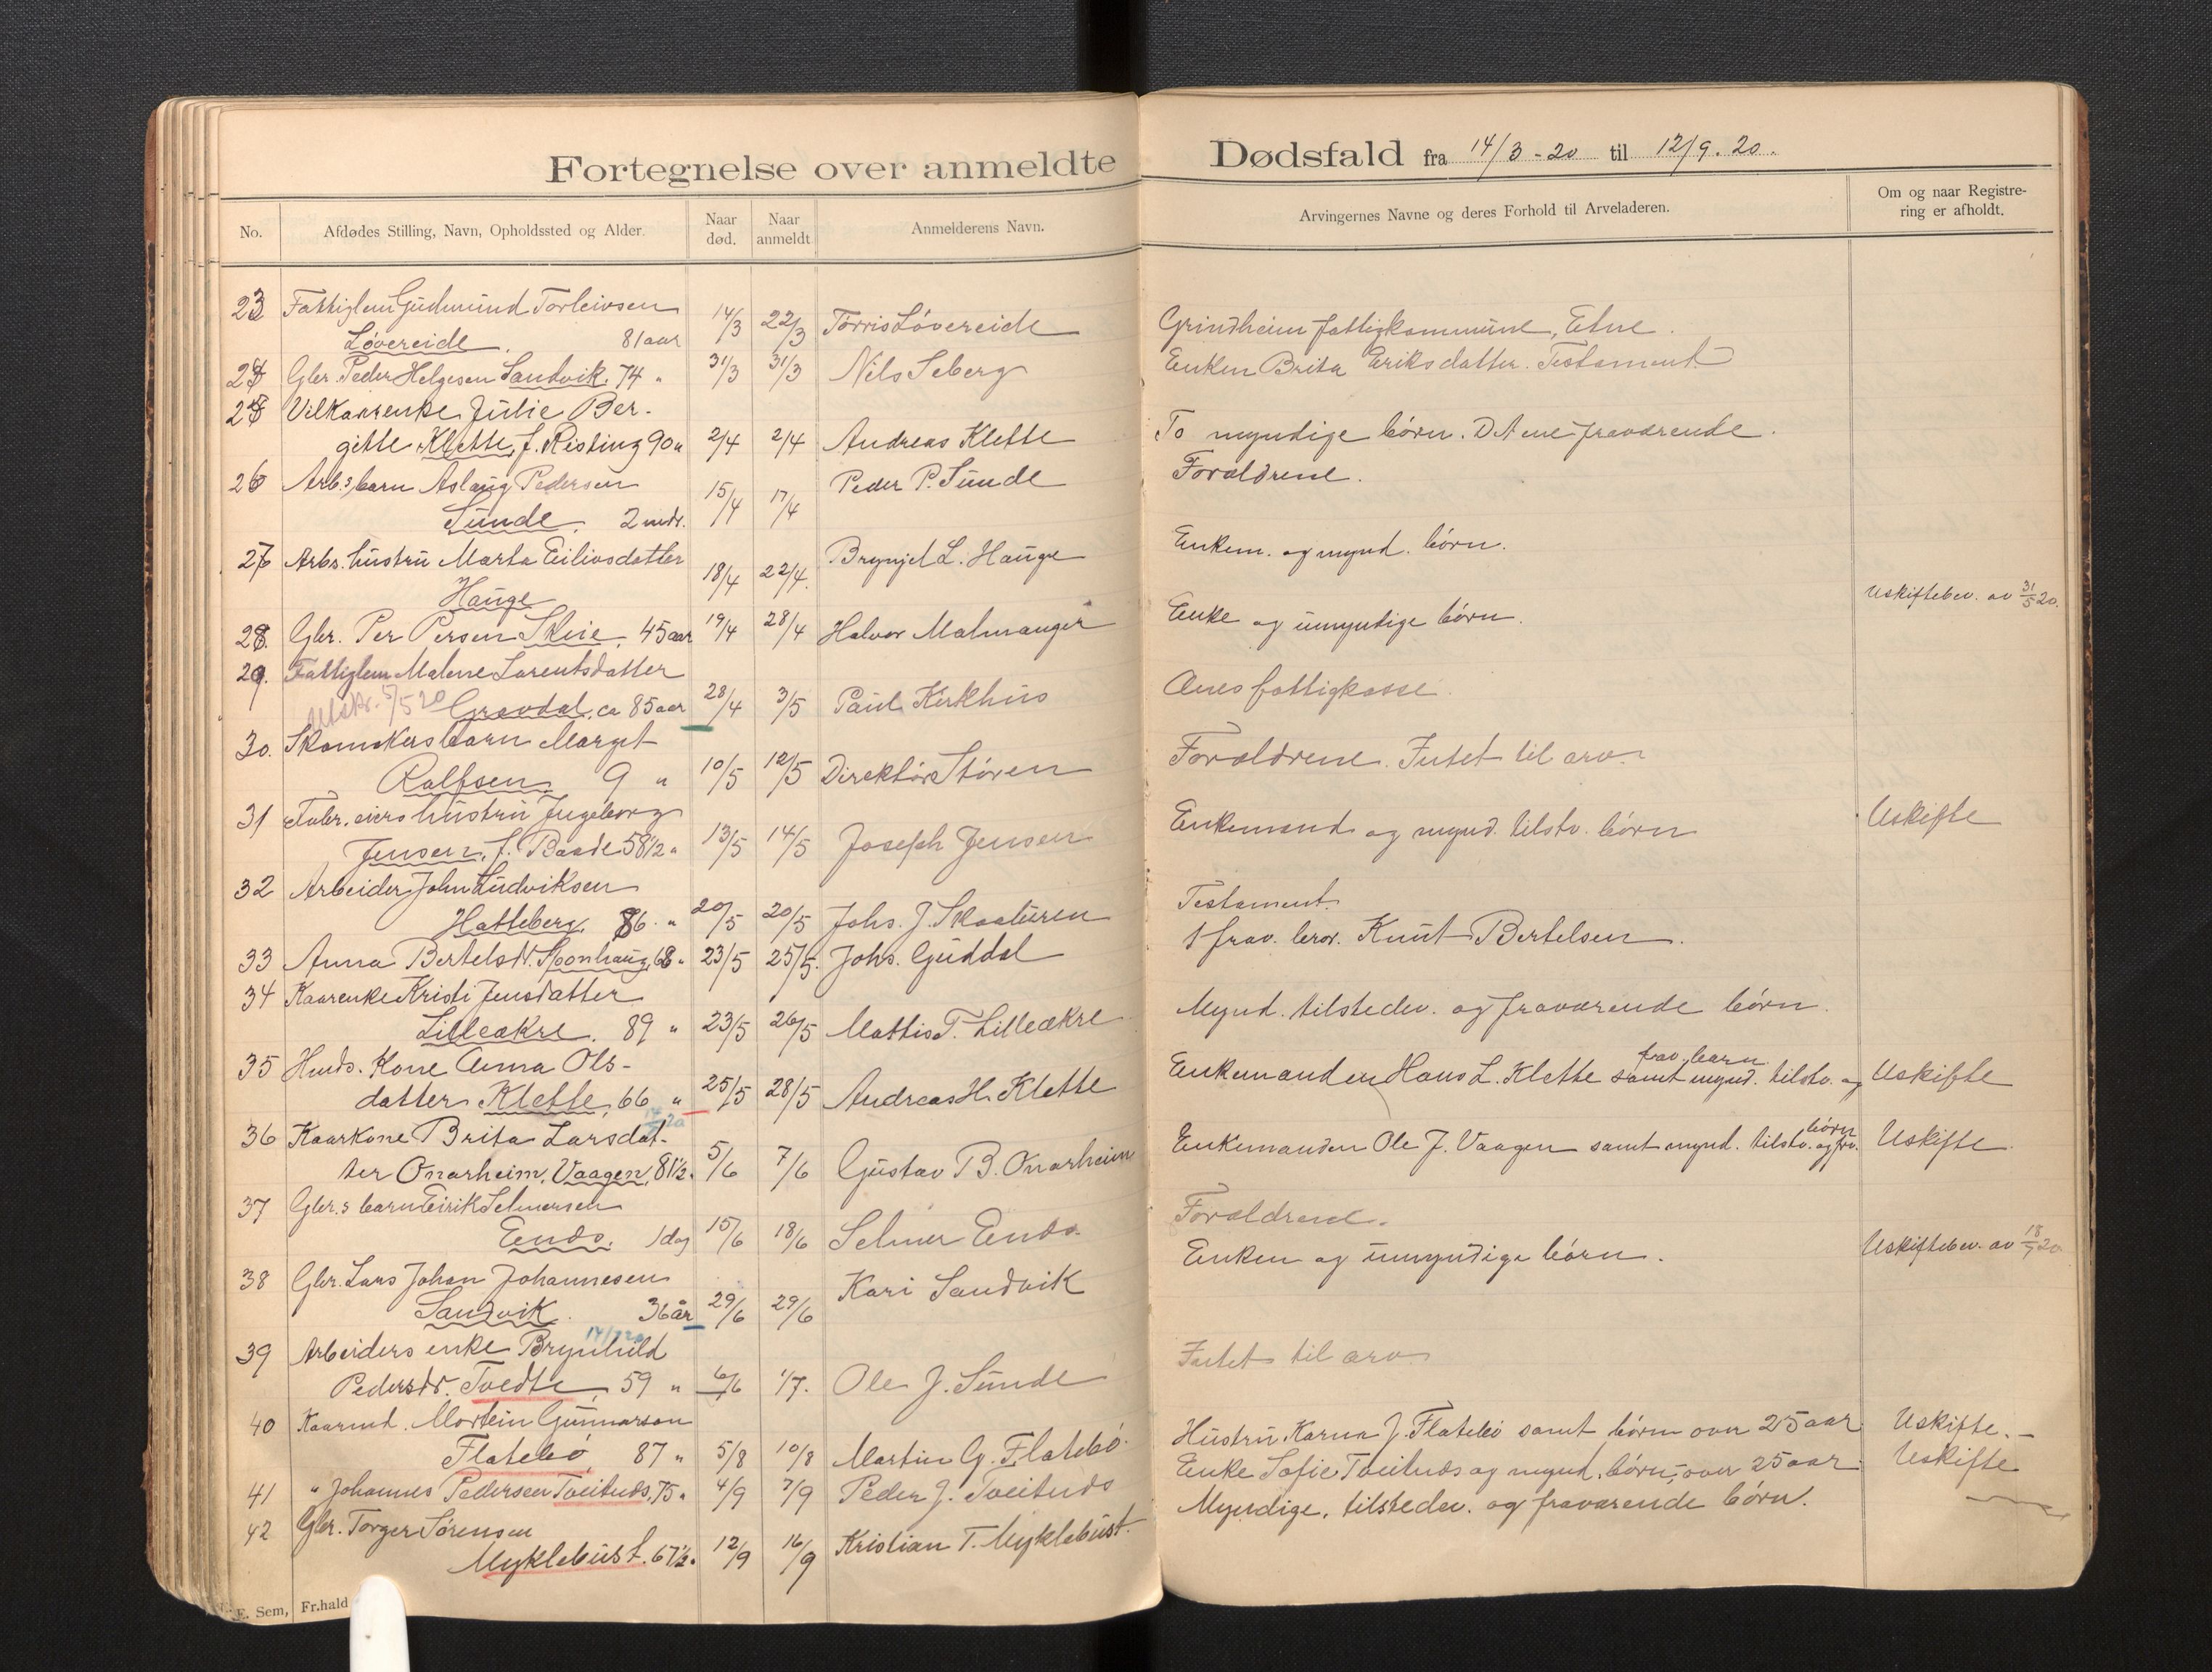 Fortegnelse over anmeldte Dødsfald fra 14/3-20 til 12/9.20.
No. Afdødes Stilling, Navn, Opholdssted og Alder. Naar død. Naar anmeldt Anmelderens Navn. Arvingernes Navne og deres Forhold til Arveladeren. Om og naar Registrering er afholdt.
23 Fattiglem Gudmund Torleivsen
Løvereide. 81 aar 14/3 22/3 Torris Løvereide Grindheim fattigkommune, Etne.
24 Gbr. Peder Helgesen Sandvik. 74 " 31/3 31/3 Nils Seberg Enken Brita Eriksdatter. Testament.
25 Vilkaarenke Julie Ber-
gitte Klette, f. Risting 90 " 2/4 2/4 Andreas Klette To myndige børn. Det ene fraværende.
26 Arb.s barn Aslaug Pedersen Peder P. Sunde Forældrene.
Sunde. 2 mdr. 15/4 17/4
27 Arbs. hustru Marta Eilivsdatter Brynjel L. Hauge Enkem. og mynd. børn.
Hauge 18/4 22/4.
28. Gbr. Per Persen Skeie, 45 aar 19/4 28/4 Halvor Malmanger Enke og umyndige børn. Uskiftebev. av 31/5 20.
29. Fattiglem Malene Larentsdatter
Utskr. 5/5 20 Grovdal, ca 85 aar 28/4 3/5 Paul Kirkhus Ænes fattigkasse.
30. Skomakersbarn Marget
Ralfsen. 9 " 10/5 12/5 Direktør Støren Forældrene. Intet til arv.
31 Fabr. eiers hustru Ingeborg
Jensen, f. Baade 58 1/2 " 13/5 14/5 Joseph Jensen Enkemand og mynd. tilstv. børn Uskifte
32 Arbeider John Ludviksen
Hatteberg. 86. " 20/5 20/5 Johs. J. Skaaluren Testament.
33 Anna Bertelsdtr. Sponhaug, 68 " 23/5 25/5. Johs. Guddal 1 frav. bror. Knut Bertelsen.
34 Kaarenke Kristi Jensdatter
Lilleækre. 89 " 23/5 26/5 Mattis T. Lilleækre Mynd. tilstedev. og fraværende børn.
35 Hmds. Kone Anna Ols-
frav. barn
datter Klette, 66 " 25/5 28/5 Andreas H. Klette Enkemanden Hans L. Klette samt mynd. tilstv. og Uskifte
36 Kaarkone Brita Larsdat-
børn
ter Onarheim, Vaagen, 81 1/2. 5/6 7/6 Gustav B. Onarheim Enkemanden Ole J. Vaagen samt mynd. tilstv. og frv. Uskifte.
37 Gbr.s barn Eirik Selmersen
Enæs. 1 dag 15/6 18/6 Selmer Enæs. Forældrene.
38 Gbr. Lars Johan Johannesen Kari Sandvik Enken og umyndige børn. Uskiftebev. av 18/7 20
Sandvik. 36 år 29/6 29/6
14/7 20
39 Arbeiders enke Brynhild
Pedersdr. Tvedte, 59 " 6/6 1/7. Ole J. Sunde Intet til arv
40 Kaarmd. Mortein Gunnarson
Flatebø, 87 " 5/8 10/8 Martin G. Flatebø. Hustru Karna J. Flatebø samt børn over 25 aar Uskifte. -
41 " Johannes Pedersen Tveitnæs, 75 " 4/9 7/9 Peder J. Tveitnæs Enke Sofie Tveitnæs og mynd. børn, over 25 aar. Uskifte
42 Gbr. Torger Sørensen
Myklebust. 67 1/2. 12/9 16/9 Kristian T. Myklebust. Myndige, tilstedev. og fraværende børn.
E. Sem, Fr.hald